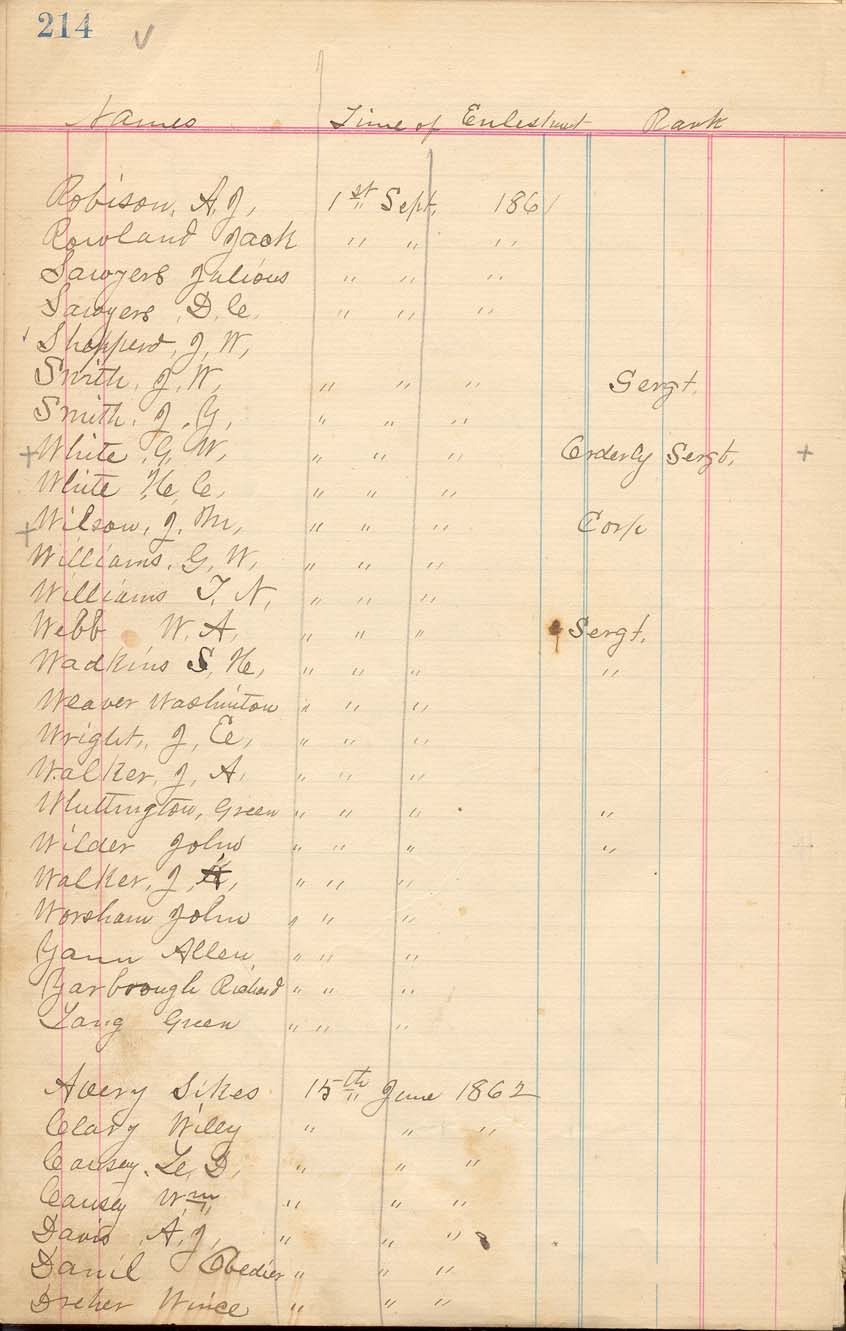 214 V
Names Time of Enlestmt Rank
Robison, A. J, 1st Sept, 1861
Rowland Jack " " "
Sawyers Julious " " "
Sawyers, D, C, " " "
Shepperd, J, W,
Smith, J, W, " " " Sergt.
Smith, J, Y, " " "
+ White G, W, " " " Orderly Sergt, +
White H, C, " " "
+ Wilson, J, M, " " " Corp
Williams, G, W, " " "
Williams T, N, " " "
Webb W. A, " " " Sergt.
Wadkins S, H, " " " "
Weaver Washinton " " "
Wright, J, E, " " "
Walker, J, A, " " "
Whuttington, Green " " " "
Wilder John " " " "
Walker, J, " " "
Worsham John " " "
Yann Allen, " " "
Yarbrough Richard " " "
Lang Green " " "
Avery Sikes 15th June 1862
Clary Willy " " "
Causey, L, D, " " "
Causey Wm " " "
Davis, A, J, " " "
Danil Obedier " " "
Dreher Wince " " "